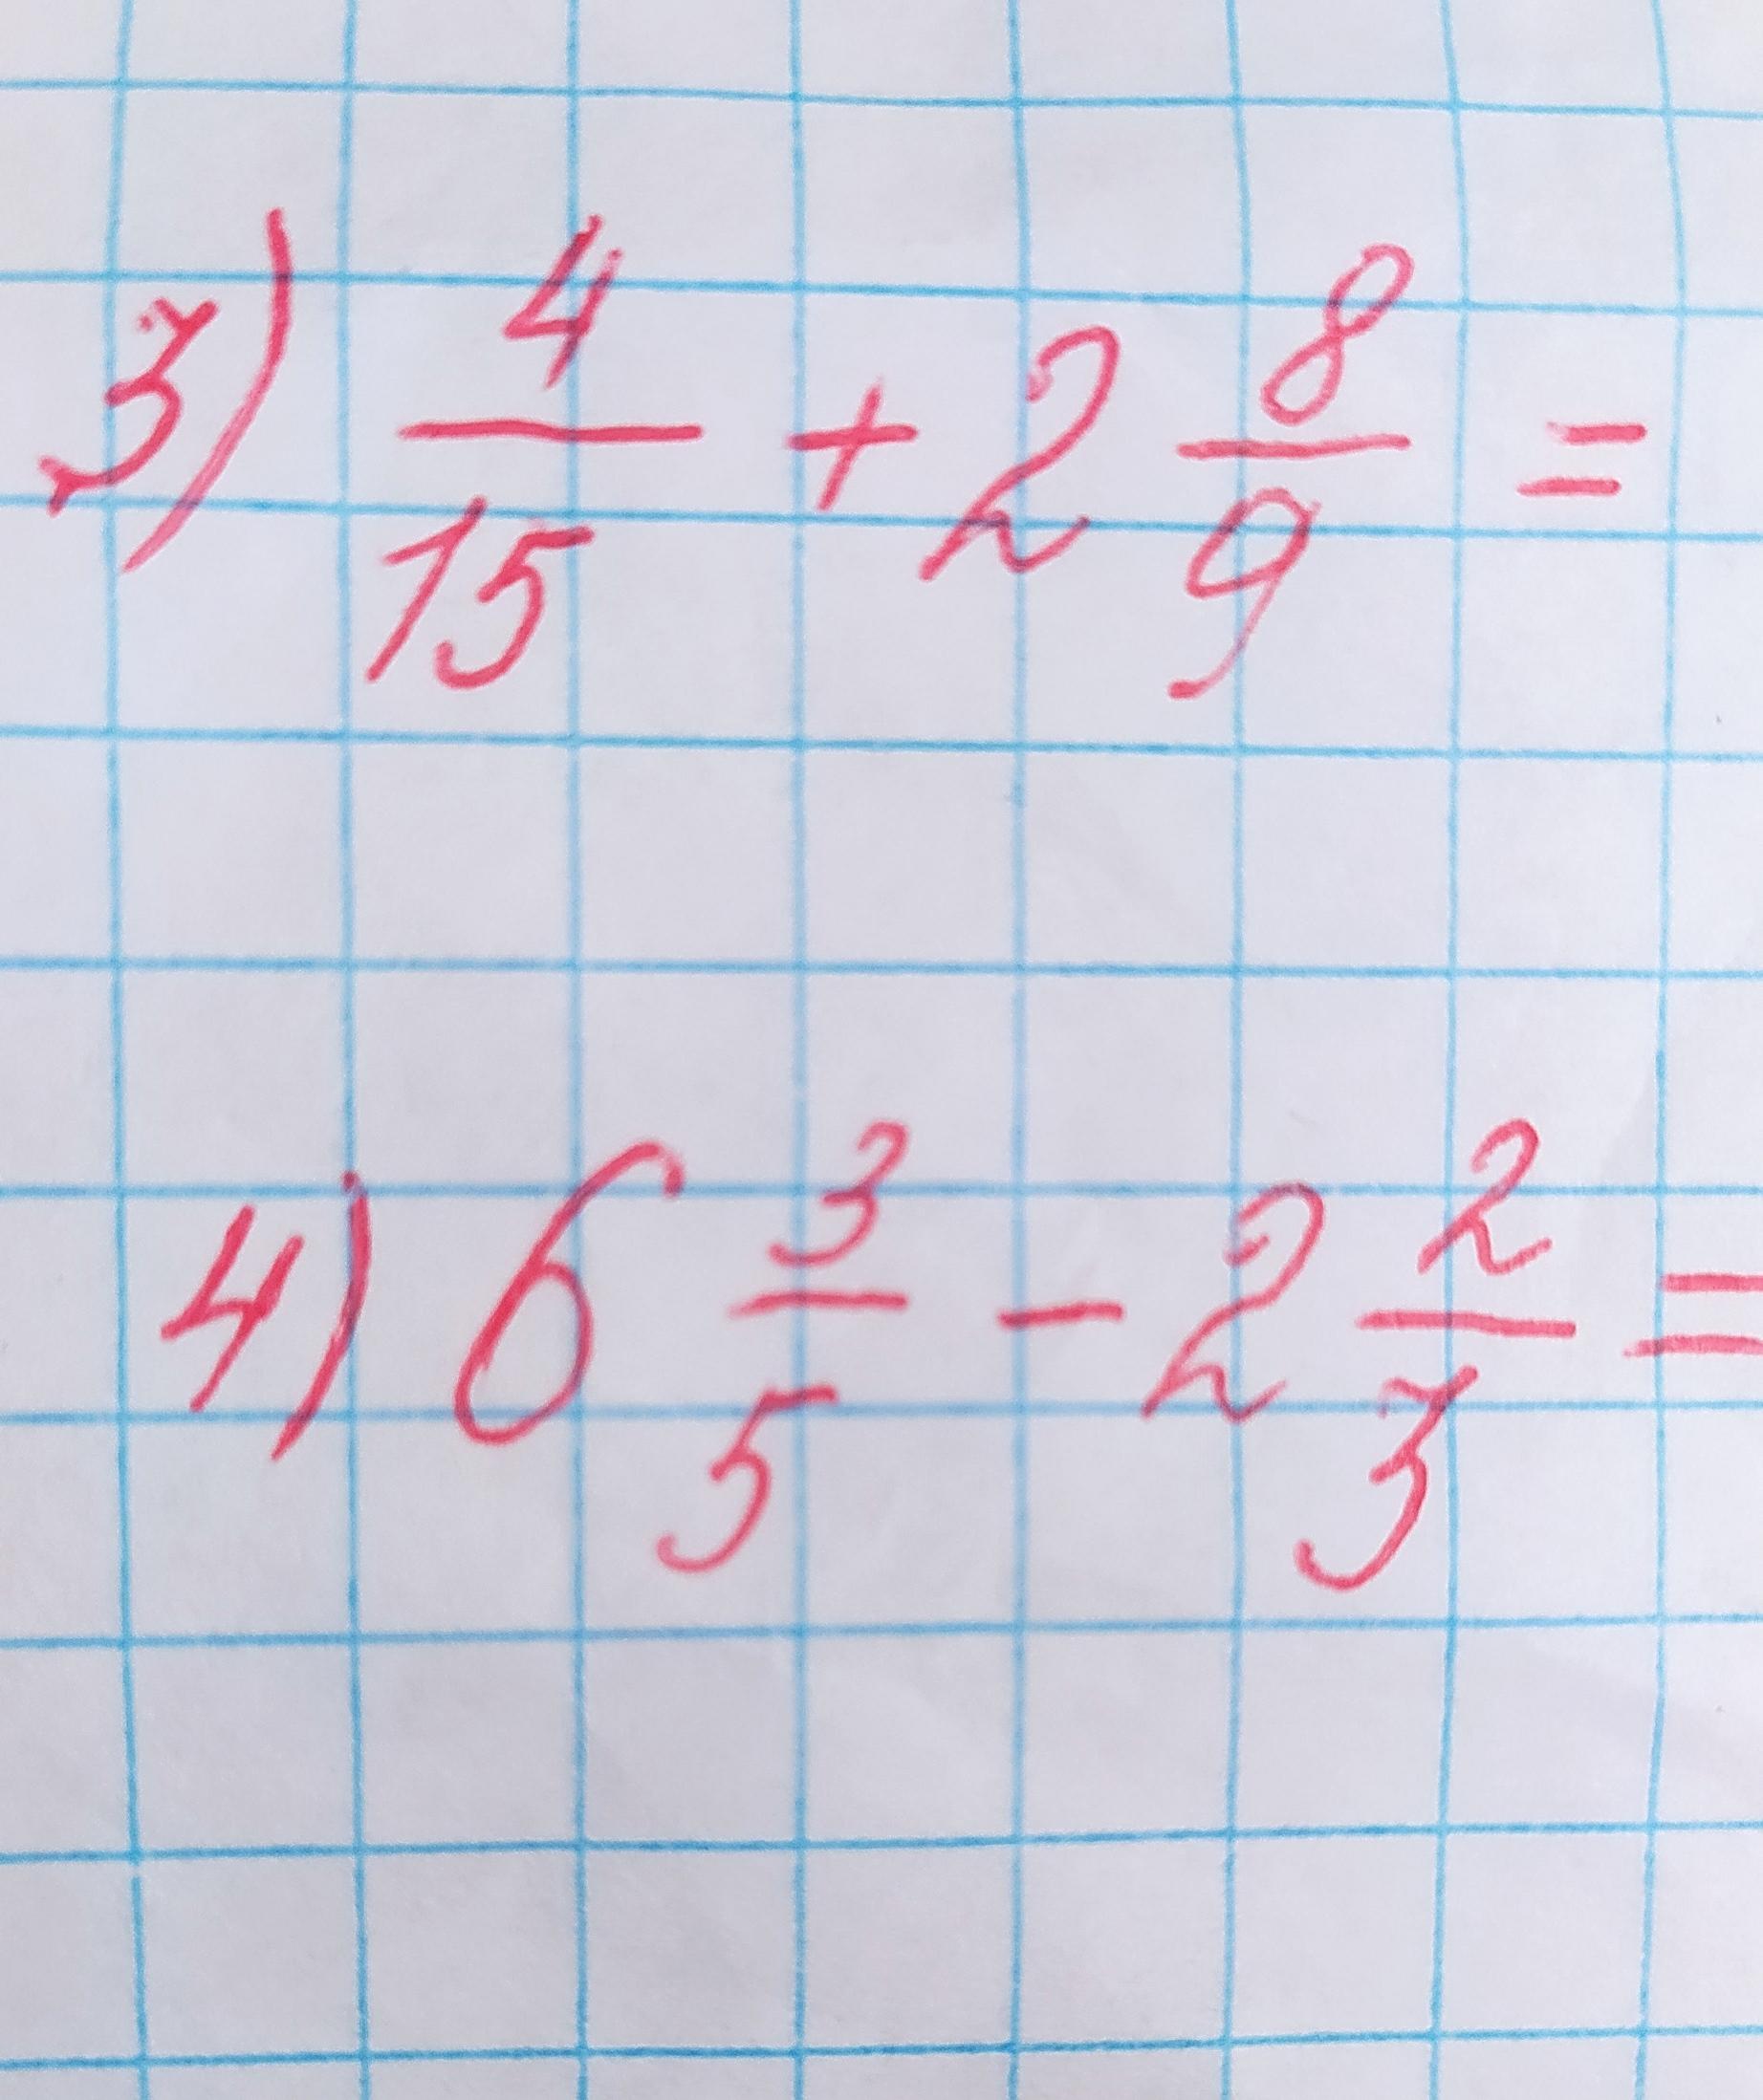 3) 4/15 + 2 8/9 =
4) 6 3/5 - 2 2/3 =